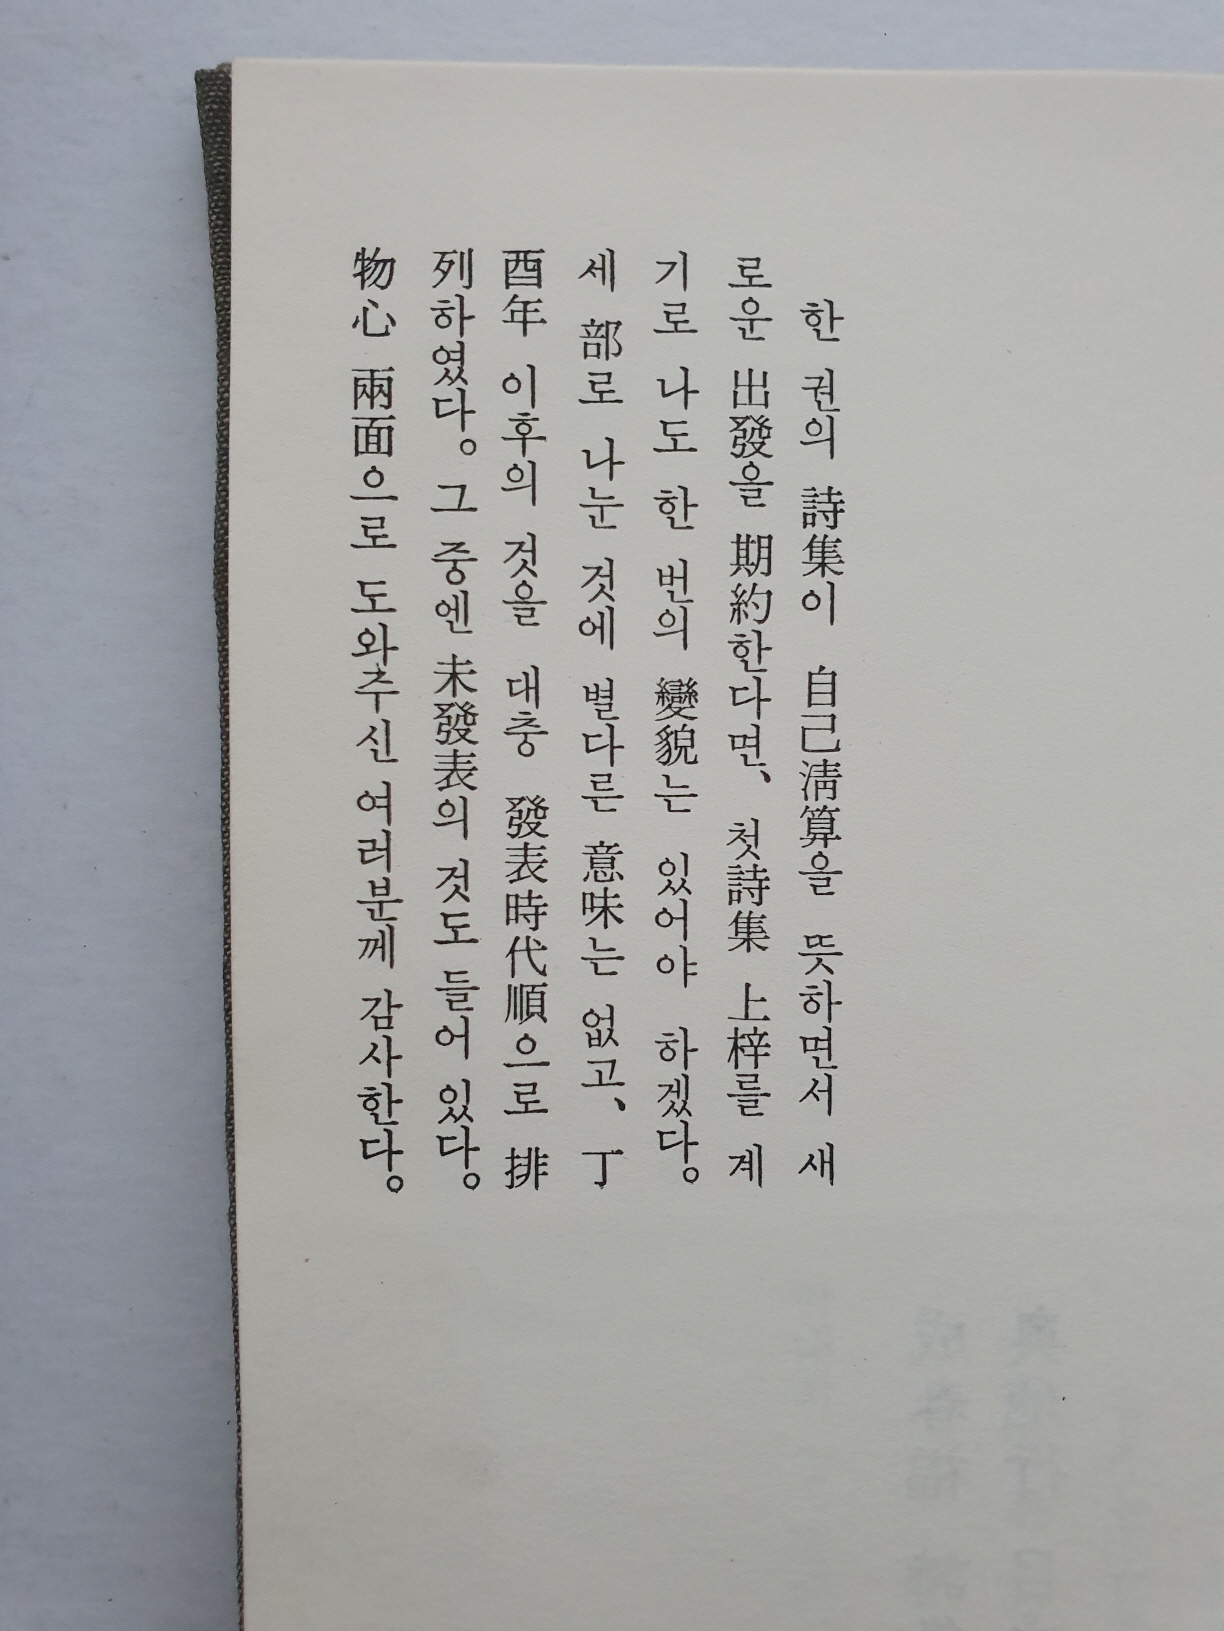 한 권의 詩集이 自己淸算을 뜻하면서 새
로운 出發을 期約한다면、첫詩集 上梓를 계
기로 나도 한 번의 變貌는 있어야 하겠다。
세 部로 나눈 것에 별다른 意味는 없고、丁
酉年 이후의 것을 대충 發表時代順으로 排
列하였다。그 중엔 未發表의 것도 들어 있다。
物心 兩面으로 도와주신 여러분께 감사한다。